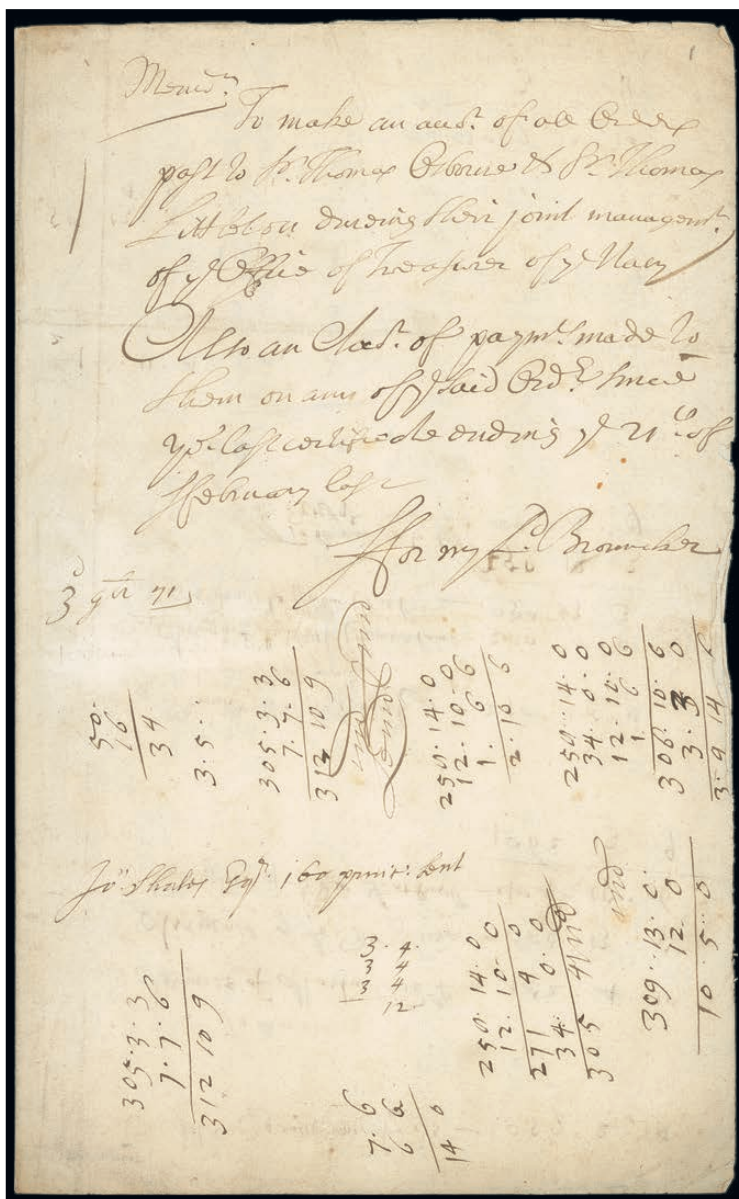 1
Memd:m
To make an acct. of all Orders
past to Sr. Thomas Osborne & Sr. Thomas
Littleton dureing their joint managemt.
of ye Office of Treasurer of ye Navy
Also an Acct. of paymts. made to
them on any of ye said Ordrs. since
ye. last certificate ending ye 21th. of
ffebruary last
ffor my Ld Brouncker
3d 71
50.
16
34
3.5..
305.3.3
7.7.6
312 10 9
250.14.0
12.10.6
1. 6
2.10 6
250..14.0
34.0.0
12.10.6
1. 6
306.10.6
3.3 0
3.9 14 6
Jo: Shales Esqr. 160
305.3.3
7.7.6
312 10 9
3.4.
3 4
3 4
12
7.6
6 6
14 0
250.14 0
12.10.0
271 4 0
34. 0.0
305 4
309..13.0
12 0
10 5 0